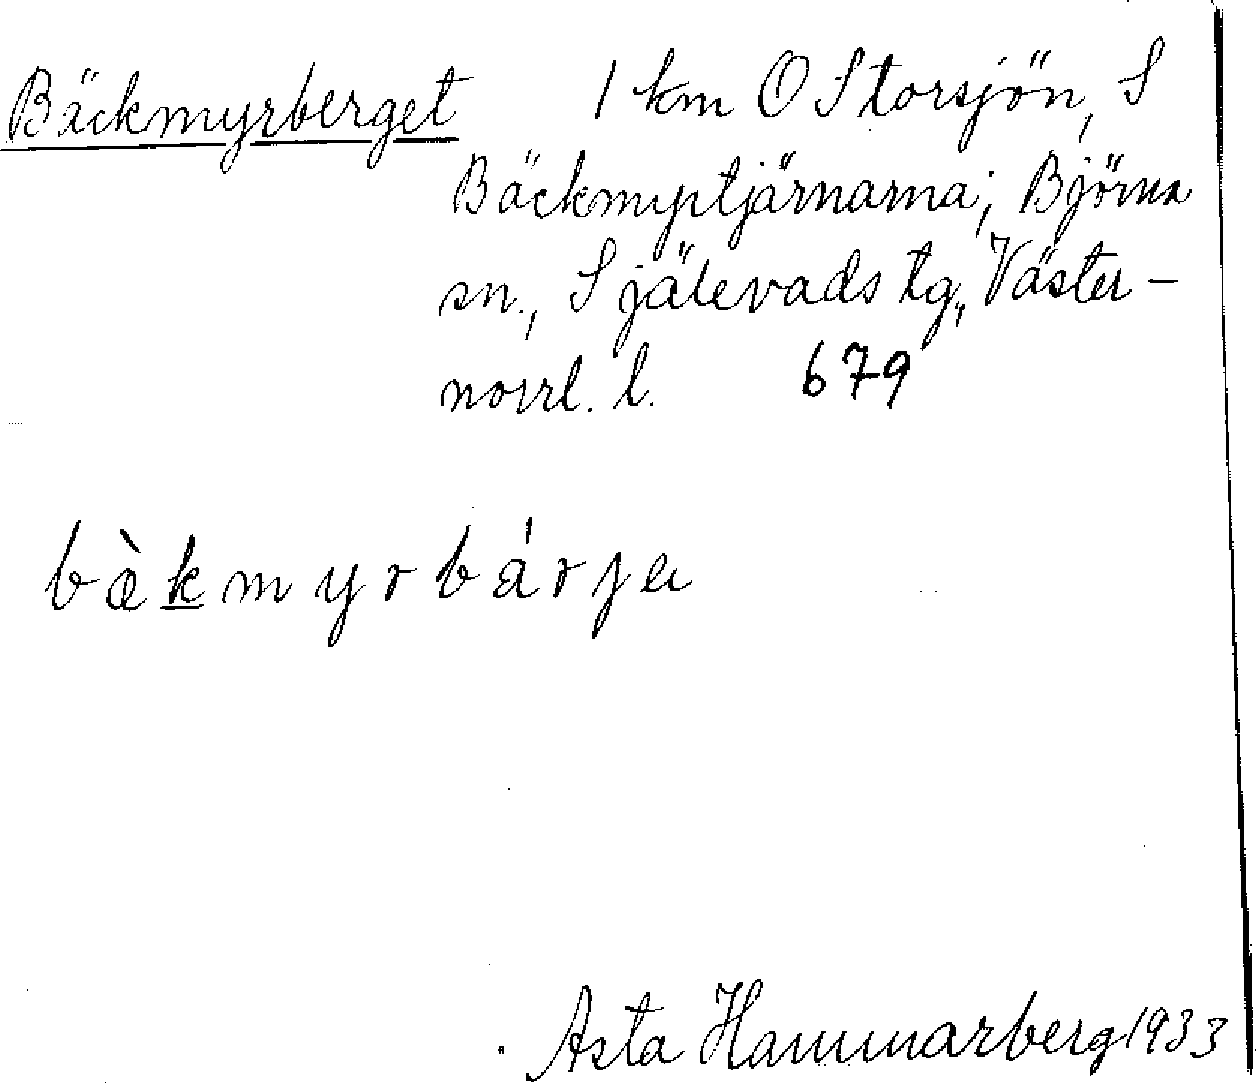 Bäckmyrberget 1 km O Storsjön, S
Bäckmyrtjärnarna; Björna
sn., Själevads tg., Väster-
norrl. l. 679
bæ̀kmyrbárjə
Asta Hammarberg 1933